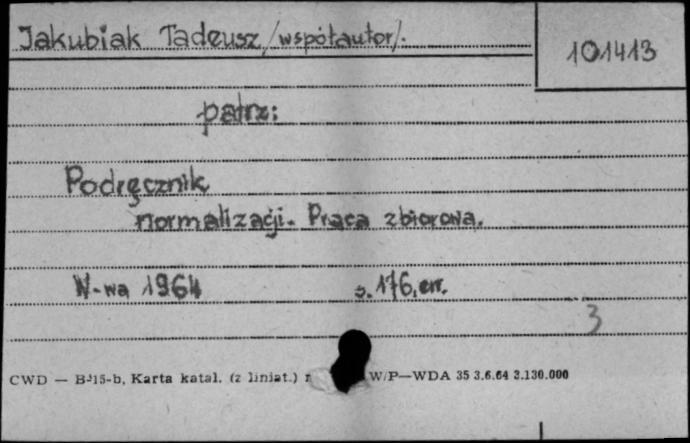 Jakubiak Tadeusz /współautor/.
101413
patrz:
Podręcznik
normalizacji. Praca zbiorowa.
W-wa 1964 s. 176, err.
3
CWD — B-15-b, Karta katal. (z liniat.) W/P—WDA 35 3.6.64 3.130.000